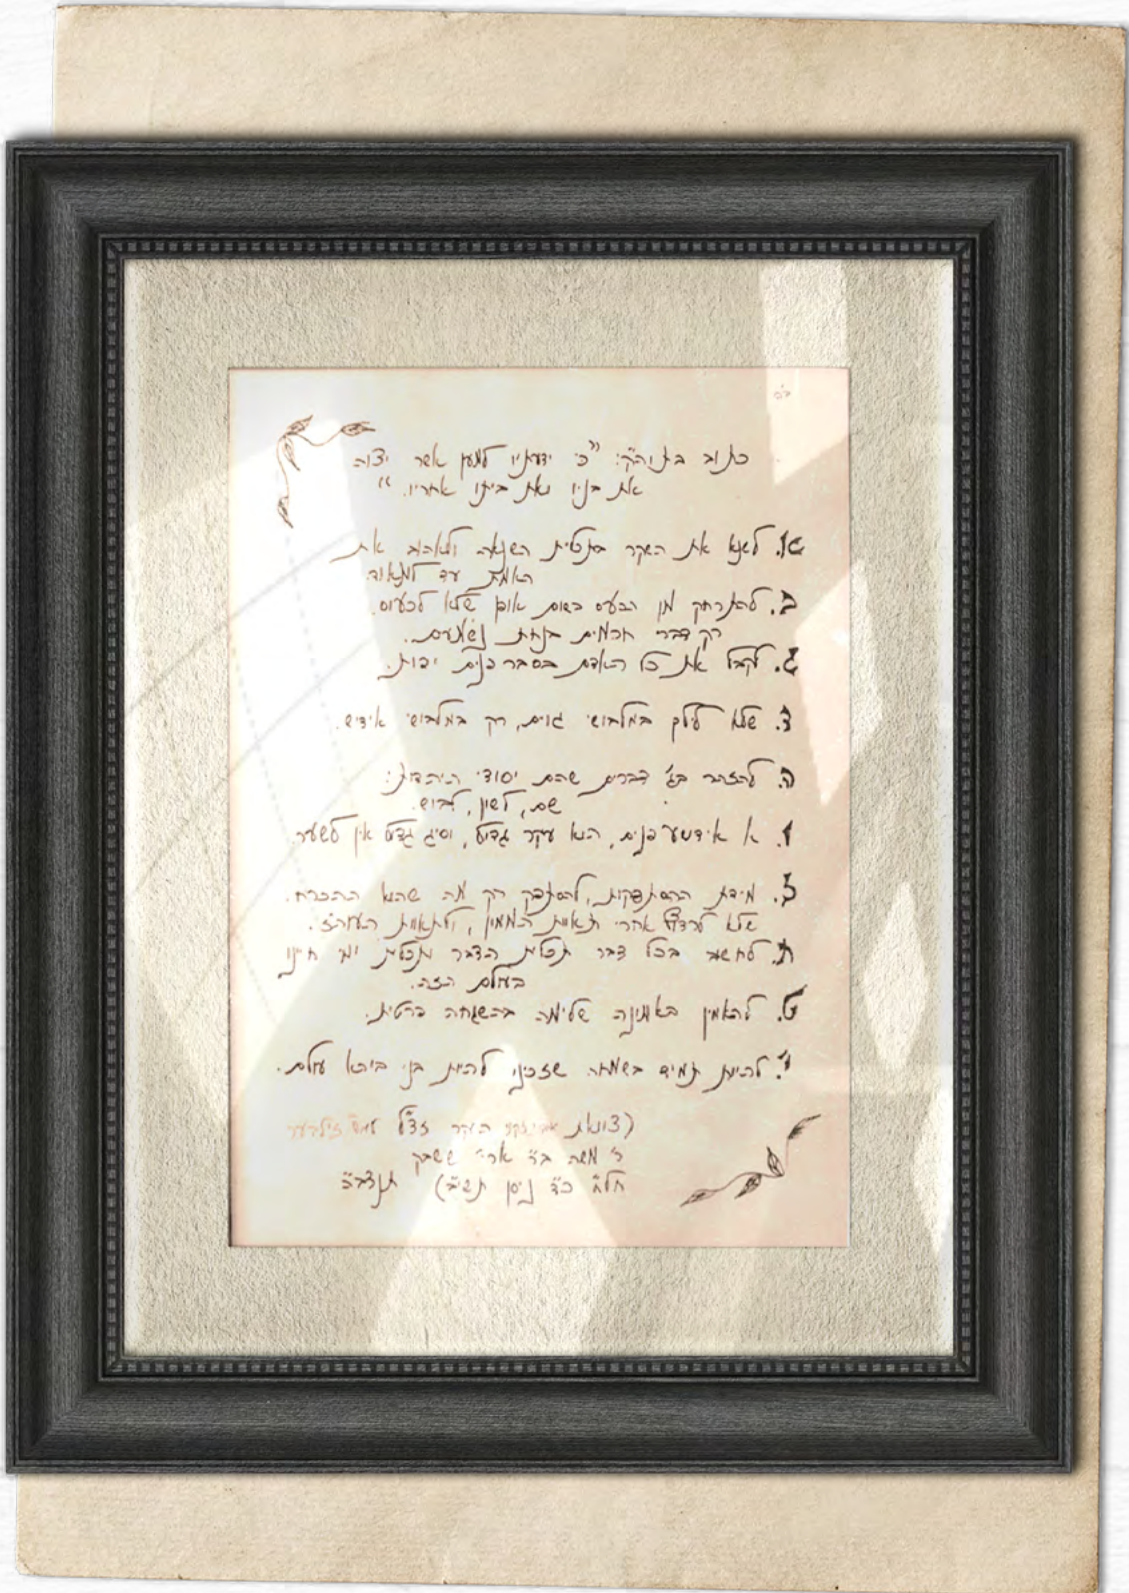 ב"ה
כתוב בתוה"ק: "כי ידעתיו למען אשר יצוה
את בניו ואת ביתו אחריו."
א. לשנא את השקר בתכלית השנאה ולאהוב את
האמת עד למאוד.
ב. להתרחק מן הכעס בשום אופן שלא לכעוס.
רק דברי חכמים בנחת נשמעים.
ג. לקבל את כל האדם בסבר פנים יפות.
ד. שלא לילך במלבושי גוים, רק במלבושי אידיש.
ה. להזהר בג' דברים שהם יסודי היהדות:
שם, לשון, לבוש.
ו. א אידישע פנים, הוא עקר גדול, וסיג גדול אין לשער.
ז. מידת ההסתפקות, להסתפק רק מה שהוא ההכרח.
שלא לרדוף אחרי תאות הממון, ולתאות העוה"ז.
ח. לחשוב בכל דבר תכלית הדבר ותכלית ימי חיינו
בעולם הזה.
ט. להאמין באמונה שלימה בהשגחה פרטית.
י. להיות תמיד בשמחה שזכינו להיות בני בורא עולם.
(צוואת היקר זצ"ל
ר' משה ב"ר ארי' ששבק
חלח כ"ד ניסן תש"ב) תנצב"ה